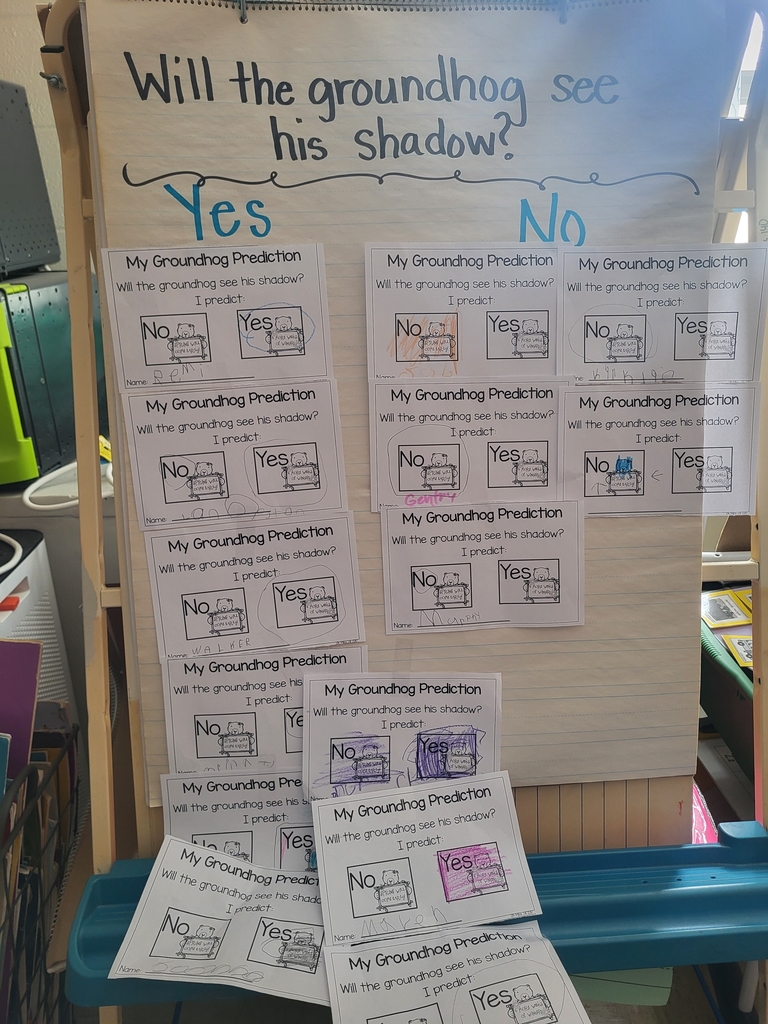 Will the groundhog see
his shadow?
Yes
No
My Groundhog Prediction
Will the groundhog see his shadow?
I predict:
No
Yes
Name: Remi
My Groundhog Prediction
Will the groundhog see his shadow?
I predict:
No
Yes
Name:
My Groundhog Prediction
Will the groundhog see his shadow?
I predict:
No
Yes
WALKER
My Groundhog Prediction
Will the groundhog see his shadow?
I predict:
No
Ye
My Groundhog Prediction
Will the groundhog see his s
I predict:
No
Yes
My Groundhog Predict
Will the groundhog see his shado
I predict:
No
Yes
Name:
My Groundhog Prediction
Will the groundhog see his shadow?
I predict:
No
Yes
My Groundhog Prediction
Will the groundhog see his shadow?
I predict:
No
Yes
Name: Maven
My Groundhog Prediction
Will the groundhog see his shadow?
I predict:
No
Yes
My Groundhog Prediction
Will the groundhog see his shadow?
I predict:
No
Yes
My Groundhog Prediction
Will the groundhog see his shadow?
I predict:
No
Yes
Gentry
My Groundhog Prediction
Will the groundhog see his shadow?
I predict:
No
Yes
Name:
My Groundhog Prediction
Will the groundhog see his shadow?
I predict:
No
Yes
Name:
My Groundhog Prediction
Will the groundhog see his shadow?
I predict:
No
Yes